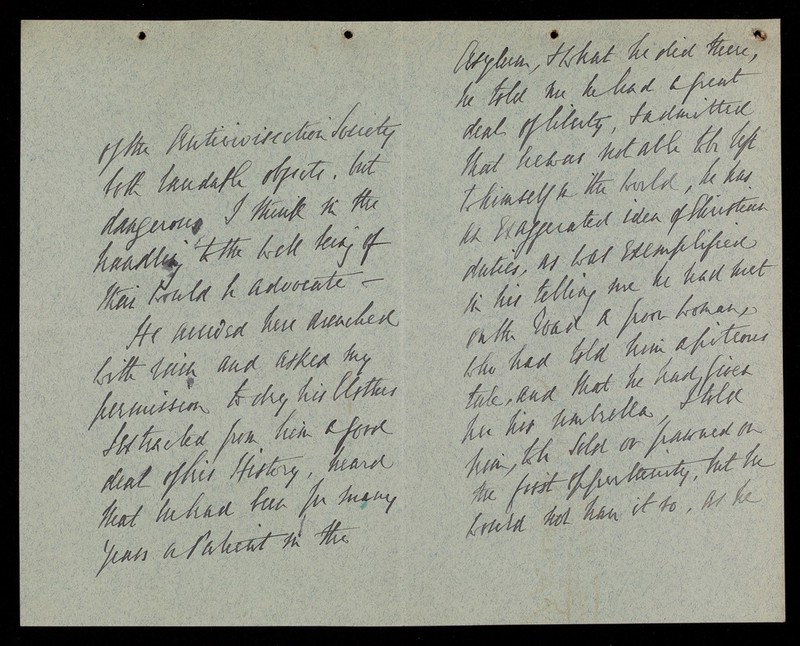 of the Antivivisection Society
both laudable objects, but
dangerous I think in the
handling to the well being of
their would be advocate –
He arrived here drenched
with rain and asked my
permission to dry his Clothes
I extracted from him a good
deal of his History, heard
that he had been for many
years a Patient in the
Asylum, & what he did there,
he told me he had a great
deal of liberty, & admitted
that he was not able to be left
to himself in the world, he has
an Exaggerated idea of Christian
duties, as was Exemplified
in his telling me he had met
on the Road a poor woman,
who had told him a piteous
tale, and that he had given
her his umbrella, I told
him, to be Sold or pawned on
the first opportunity, but he
would not have it so, as he